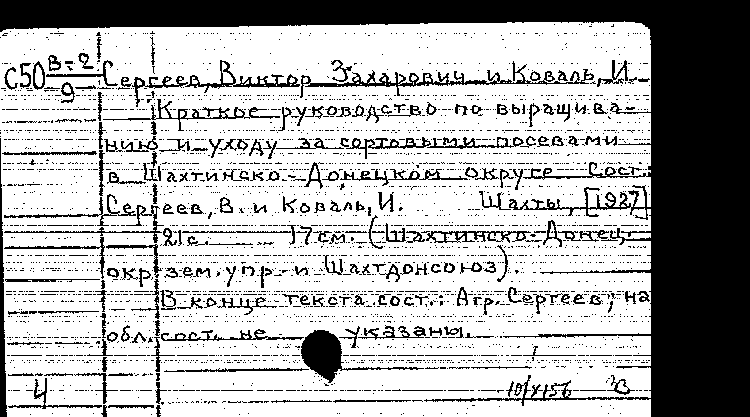 С50 В-2/9 Сергеев, Виктор Захарович и Коваль, И
Краткое руководство по выращива-
нию и уходу за сортовыми посевами
в Шахтинско-Донецком округе Сост.:
Сергеев, В. и Коваль, И. Шахты, [1927]
21с. 17см. (Шахтинско-Донец.
окр зем. упр. и Шахтдонсоюз).
В конце текста сост.: Агр. Сергеев; на
обл. сост. не указаны.
4 10/X156